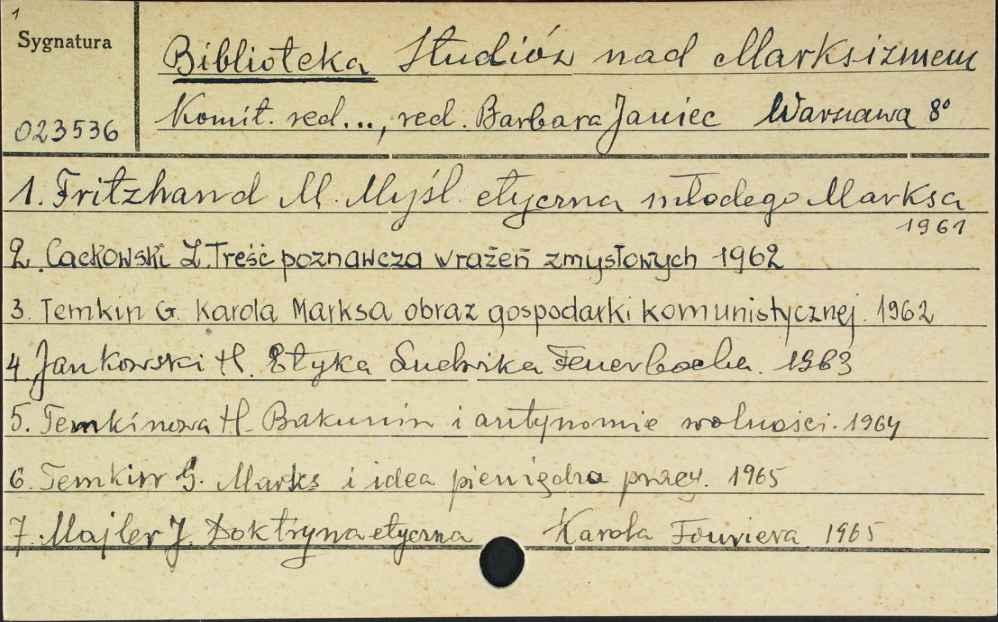 1
Sygnatura
Biblioteka Studiów nad Marksizmem
023536
Komit. red..., red. Barbara Janiec Warszawa 8°
1. Fritzhand M. Myśl etyczna młodego Marksa
1961
2. Cackowski Z. Treść poznawcza wrażeń zmysłowych 1962
3. Temkin G. Karola Marksa obraz gospodarki komunistycznej. 1962
4. Jankowski H. Etyka Ludwika Feuerbacha. 1963
5. Temkinowa H. Bakunin i antynomie wolności. 1964
6. Temkin G. Marks i idea pieniądza pracy. 1965
7. Majler J. Doktryna etyczna Karola Fouriera 1965